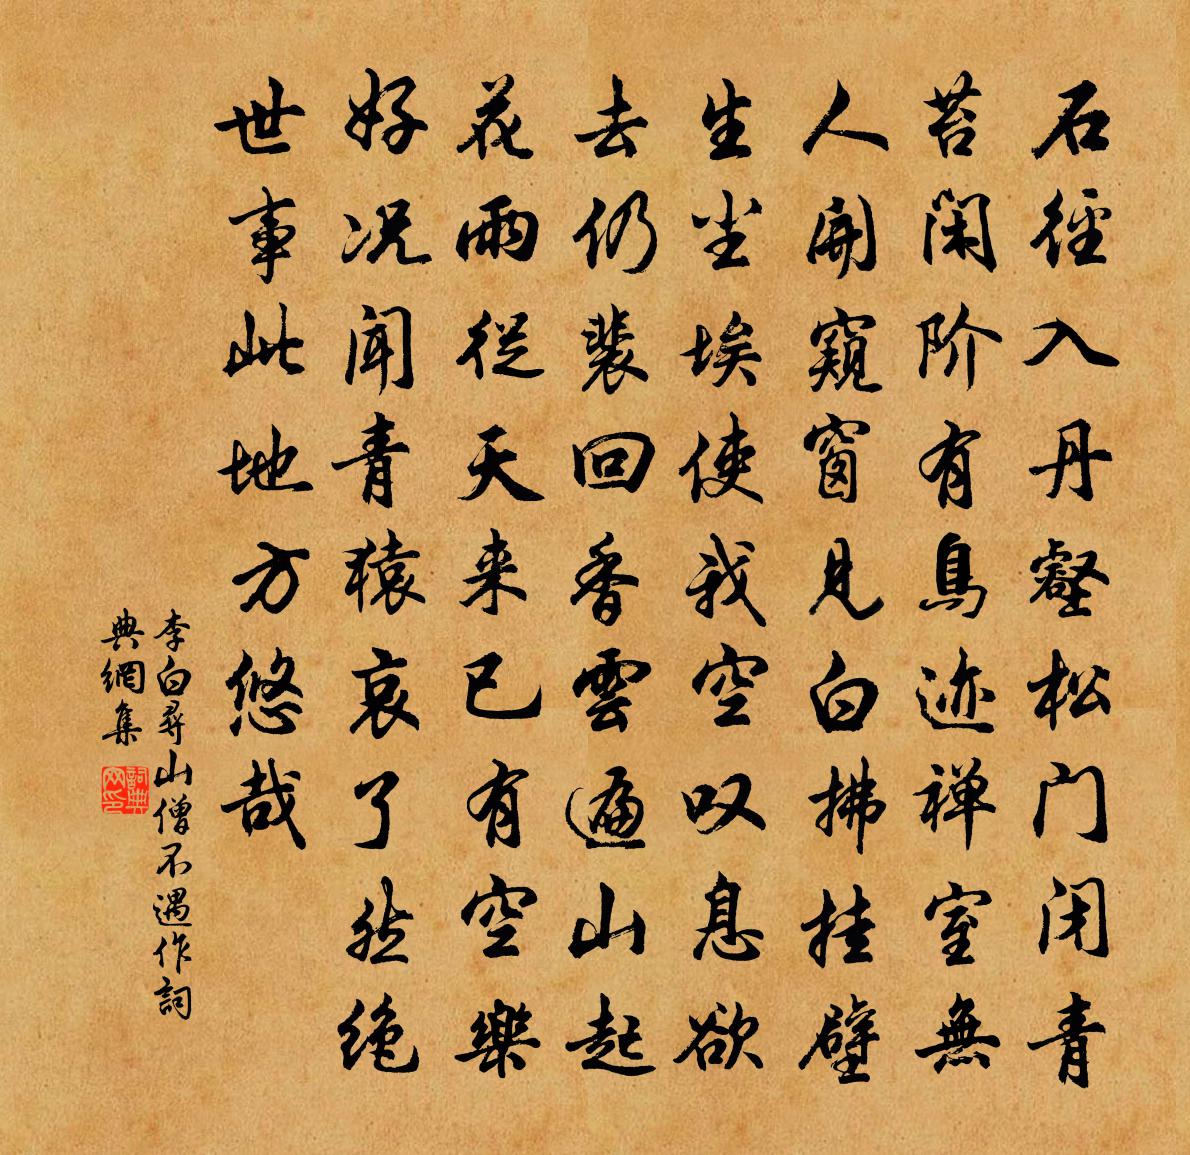 石徑入丹壑松门闭青
苔閑阶有鳥迹禅室無
人開窺窗見白拂挂壁
生尘埃使我空叹息欲
去仍裴回香雲遍山起
花雨從天来已有空樂
好况聞青猿哀了然绝
世事此地方悠哉
李白尋山僧不遇作詞
典網集
詞典
网印